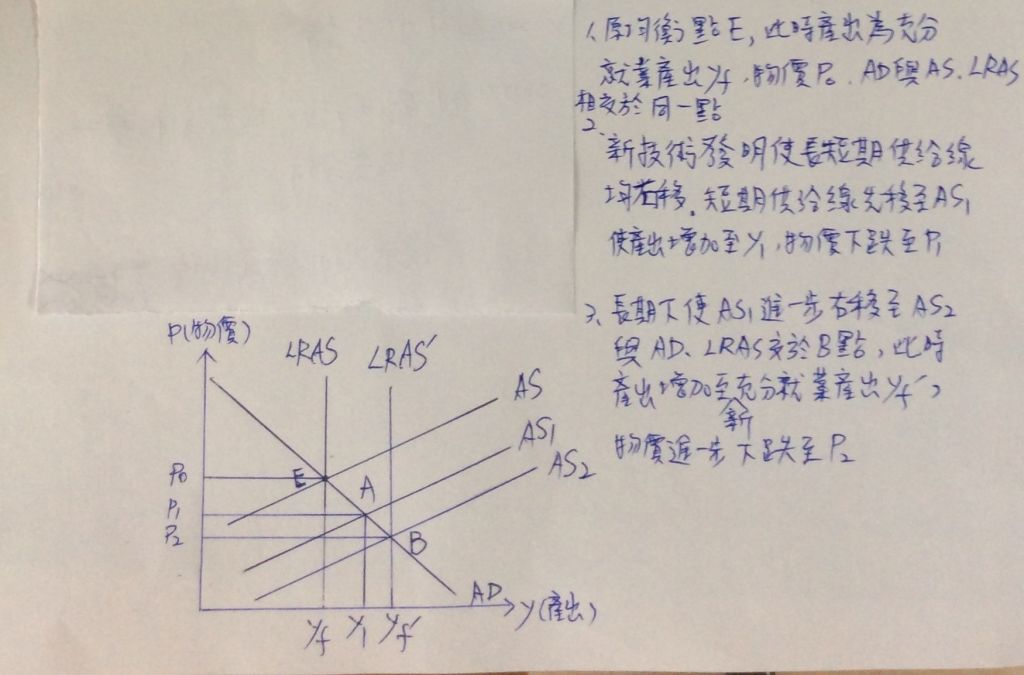 1、原均衡點E,此時產出為充分
就業產出yf,物價P0.AD與AS、LRAS
相交於同一點
2、
新技術發明使長短期供給線
均右移,短期供給線先移至AS1
使產出增加至y1,物價下跌至P1
3、長期下使AS1進一步右移至AS2
與AD、LRAS交於B點,此時
產出增加至新充分就業產出yf',
物價進一步下跌至P2
P(物價)
LRAS LRAS'
AS
AS1
AS2
P0 E A
P1
P2 B
AD
yf y1 yf' y(產出)